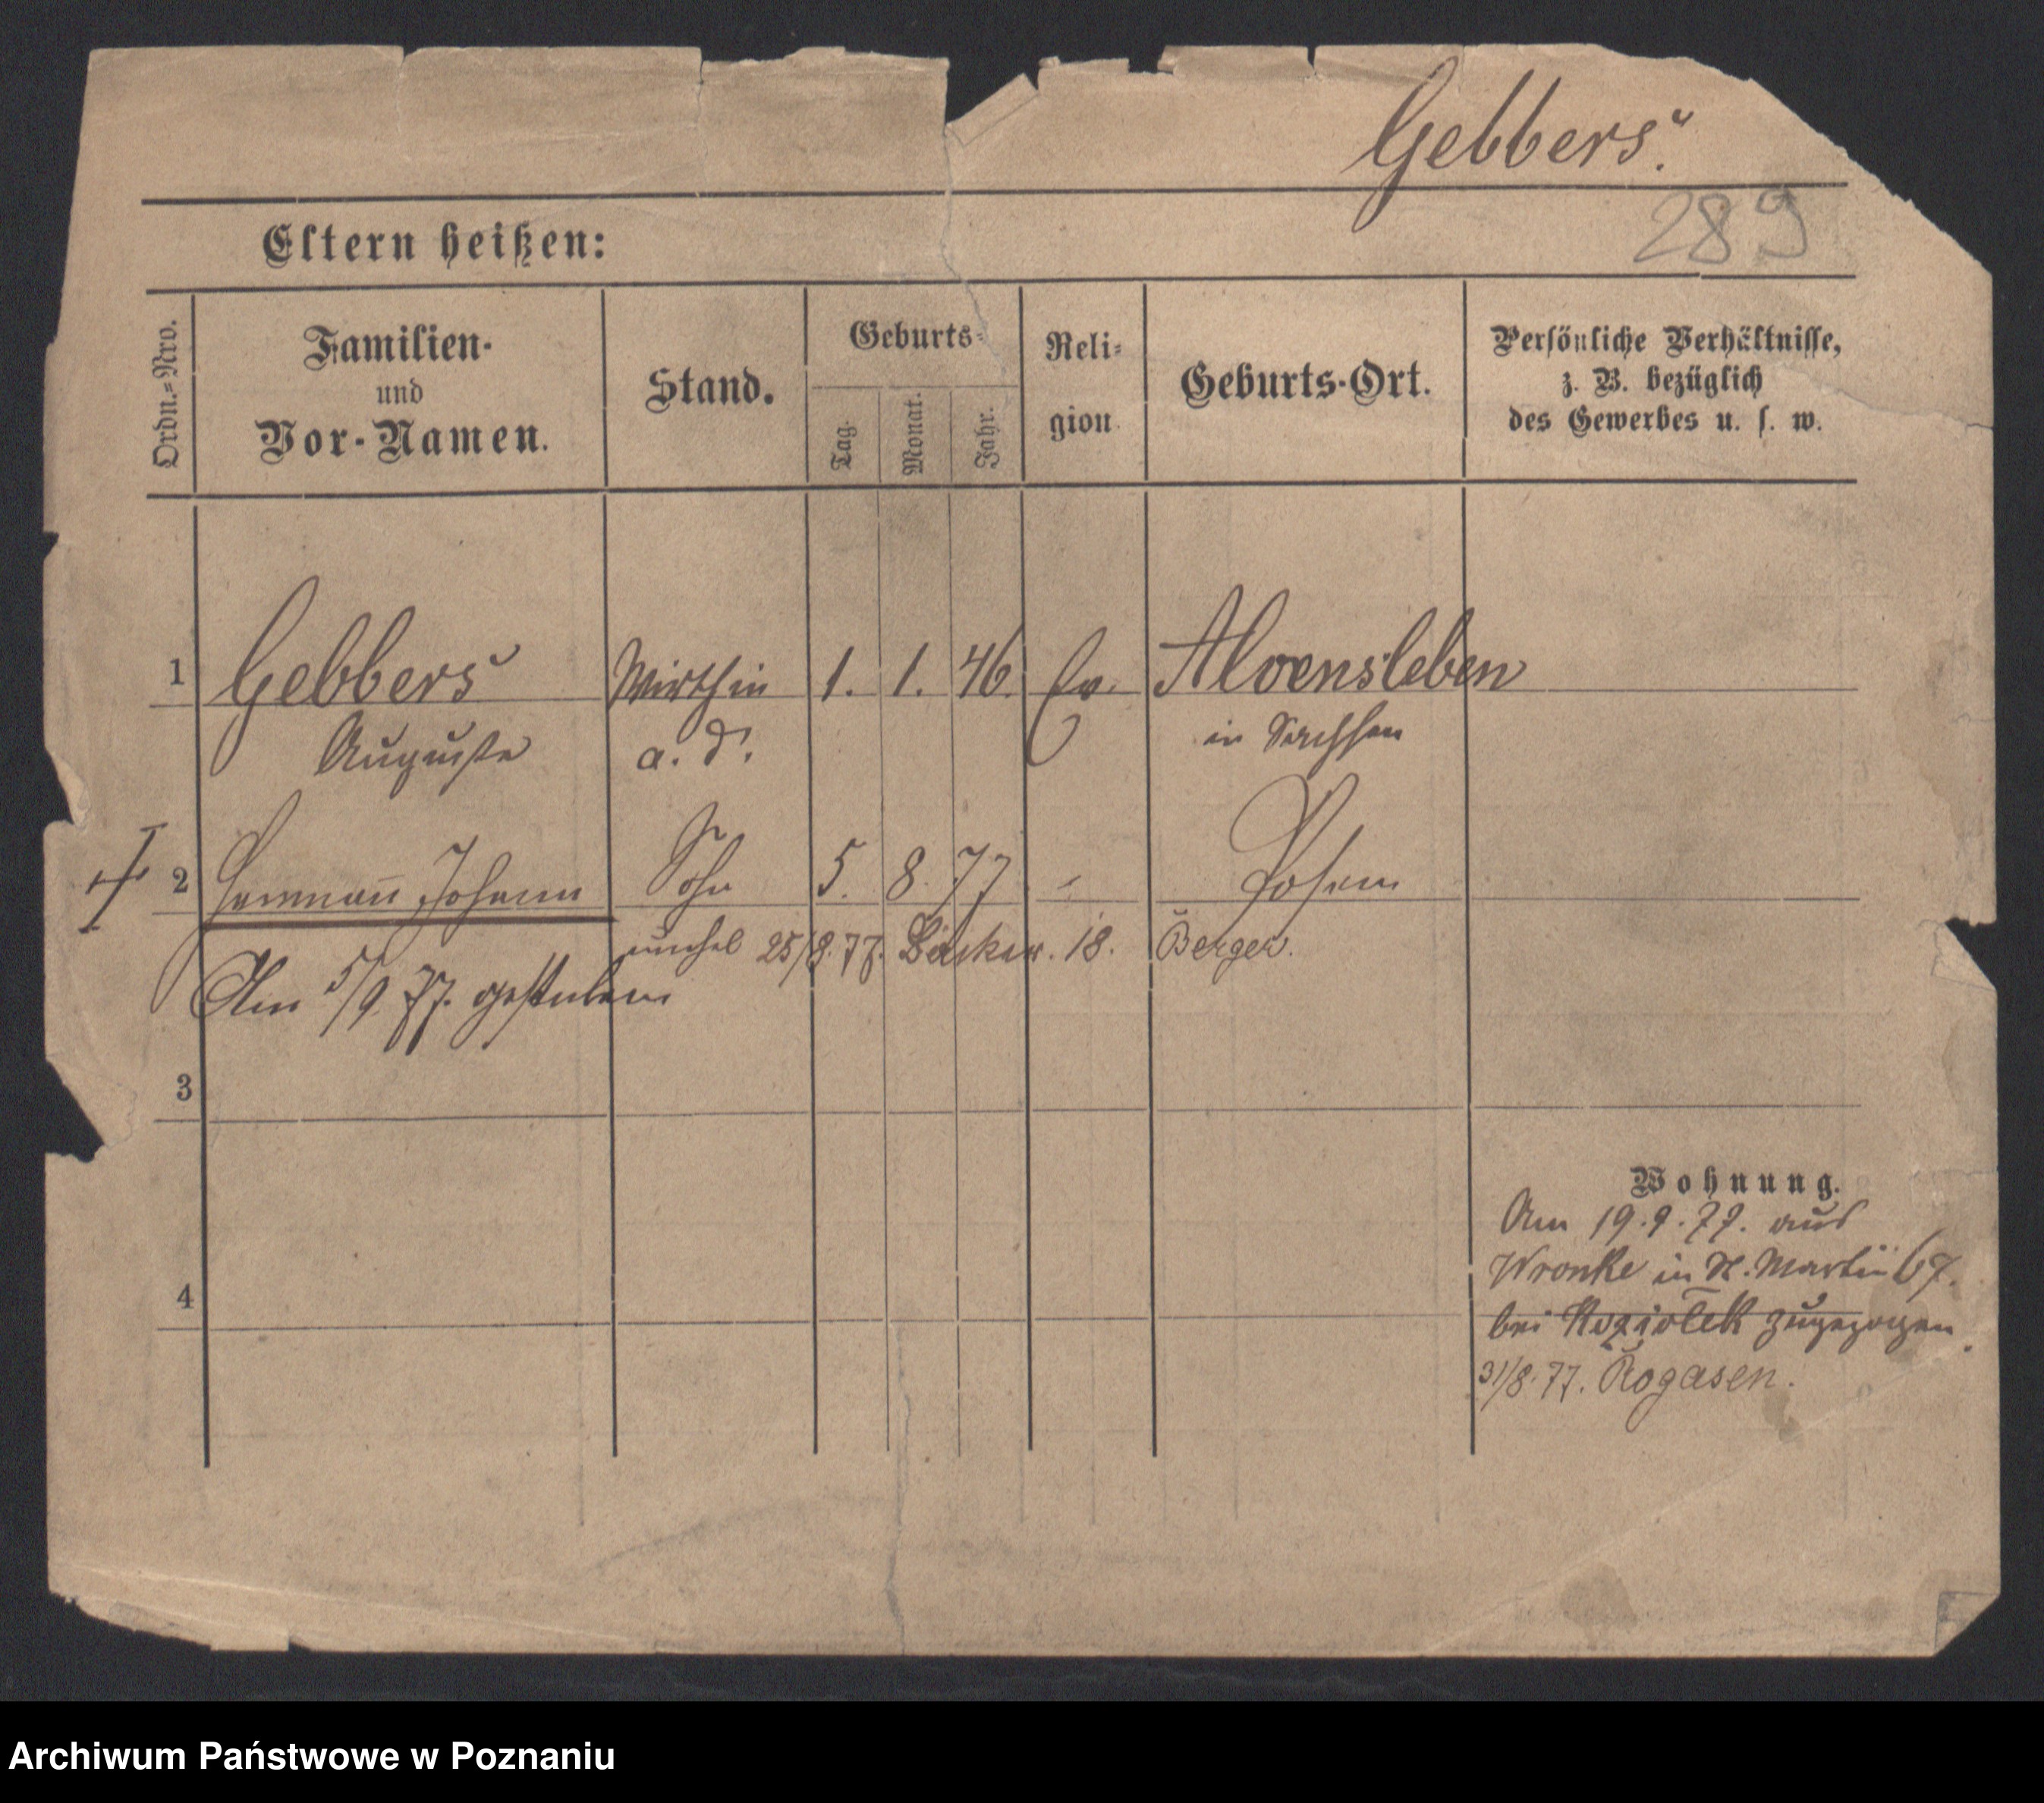 Gebbers.
289
Eltern heißen:
Ordn.=Nro.
Familien-
und
Vor-Namen.
Stand.
Geburts-
Tag.
Monat.
Jahr.
Reli-
gion
Geburts-Ort.
Persönliche Verhältnisse,
z. B. bezüglich
des Gewerbes u. s. w.
1 Gebbers Wirthin 1. 1. 46. Ev. Alvensleben
Auguste a. D. in Sachsen
2 Hermann Johann Sohn 5. 8. 77 - Posen
25/8. 77. Bäcker. 18. Berger.
Am 5/9 77. gestorben
3
Wohnung.
Am 19.9.77. aus
Wronke in St. Martin 67.
4
bei Koziolek zugezogen.
31/8. 77. Rogasen.
Archiwum Państwowe w Poznaniu